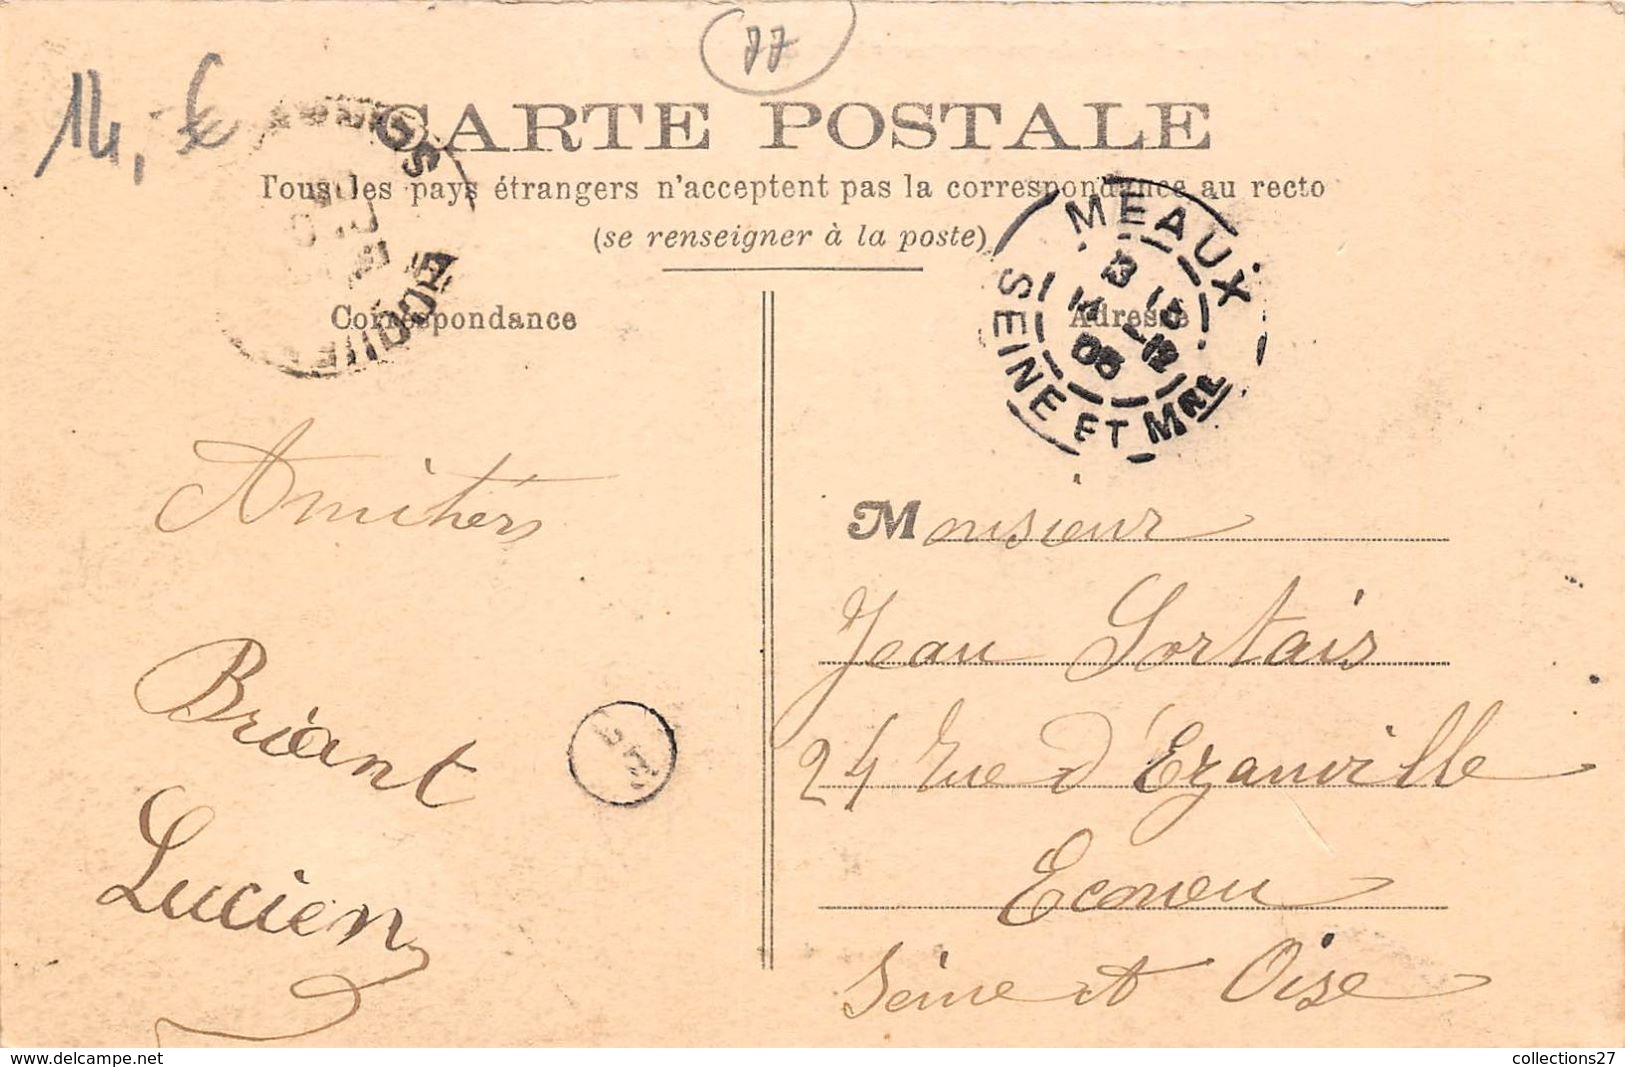 77
14,-€
CARTE POSTALE
Tous les pays étrangers n'acceptent pas la correspondance au recto
(se renseigner à la poste)
Correspondance
Adresse
MEAUX
SEINE ET MNE
Amitiés
Briant
Lucien
Monsieur
Jean Sortais
24 Rue d'Ezanville
Ecouen
Seine et Oise
www.delcampe.net
collections27